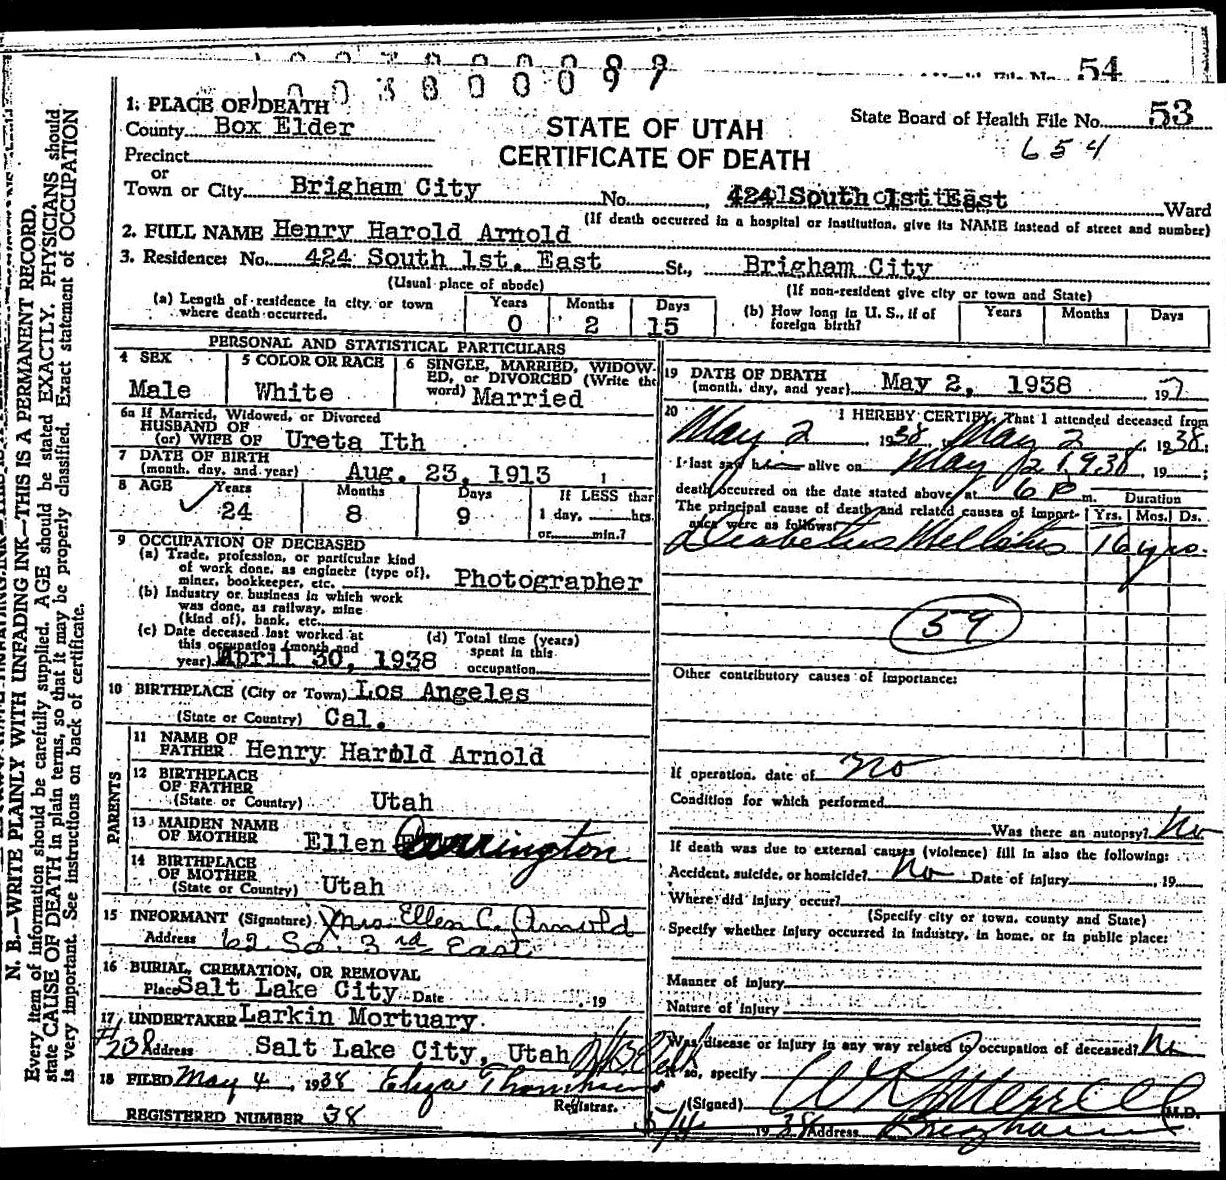 54
0 0 3 8 0 0 0 8 9
1. PLACE OF DEATH
County Box Elder
Precinct
or
Town or City Brigham City No. 424 South 1st East Ward
(If death occurred in a hospital or institution, give its NAME instead of street and number)
STATE OF UTAH
CERTIFICATE OF DEATH
State Board of Health File No. 53
654
2. FULL NAME Henry Harold Arnold
3. Residence: No. 424 South 1st. East St., Brigham City
(Usual place of abode) (If non-resident give city or town and State)
(a) Length of residence in city or town where death occurred. Years 0 Months 2 Days 15
(b) How long in U. S., if of foreign birth? Years Months Days
PERSONAL AND STATISTICAL PARTICULARS
4 SEX Male
5 COLOR OR RACE White
6 SINGLE, MARRIED, WIDOWED, or DIVORCED (Write the word) Married
6a If Married, Widowed, or Divorced
HUSBAND OF
(or) WIFE OF Ureta Ith
7 DATE OF BIRTH
(month, day, and year) Aug. 23, 1913
8 AGE Years 24 Months 8 Days 9 If LESS than 1 day, hrs. or min.?
9 OCCUPATION OF DECEASED
(a) Trade, profession, or particular kind
of work done, as engineer (type of),
miner, bookkeeper, etc. Photographer
(b) Industry or business in which work
was done, as railway, mine
(kind of), bank, etc.
(c) Date deceased last worked at
this occupation (month and
year) April 30, 1938
(d) Total time (years)
spent in this
occupation
10 BIRTHPLACE (City or Town) Los Angeles
(State or Country) Cal.
PARENTS
11 NAME OF
FATHER Henry Harold Arnold
12 BIRTHPLACE
OF FATHER
(State or Country) Utah
13 MAIDEN NAME
OF MOTHER Ellen Carrington
14 BIRTHPLACE
OF MOTHER
(State or Country) Utah
15 INFORMANT (Signature) Mrs. Ellen C. Arnold
Address 62 So. 3rd East
16 BURIAL, CREMATION, OR REMOVAL
Place Salt Lake City Date 19
17 UNDERTAKER Larkin Mortuary
Address Salt Lake City, Utah
18 FILED May 4, 1938 Eliza
Registrar.
REGISTERED NUMBER 38
19 DATE OF DEATH
(month, day, and year) May 2, 1938 19
20 I HEREBY CERTIFY, That I attended deceased from
May 2, 1938, May 2, 1938.
I last saw him alive on May 2 1938, 19 ;
death occurred on the date stated above, at 6 P m.
The principal cause of death and related causes of importance were as follows: Duration Yrs. Mos. Ds.
Diabetus Mellitus 16 yrs.
59
Other contributory causes of importance:
If operation, date of no
Condition for which performed
Was there an autopsy? No
If death was due to external causes (violence) fill in also the following:
Accident, suicide, or homicide? no Date of injury , 19
Where did injury occur?
(Specify city or town, county and State)
Specify whether injury occurred in industry, in home, or in public place:
Manner of injury
Nature of injury
Was disease or injury in any way related to occupation of deceased? No
If so, specify
(Signed) Merrell M.D.
5/4 1938 Address Brigham
N. B.—WRITE PLAINLY WITH UNFADING INK—THIS IS A PERMANENT RECORD.
Every item of information should be carefully supplied. AGE should be stated EXACTLY. PHYSICIANS should
state CAUSE OF DEATH in plain terms, so that it may be properly classified. Exact statement of OCCUPATION
is very important. See instructions on back of certificate.